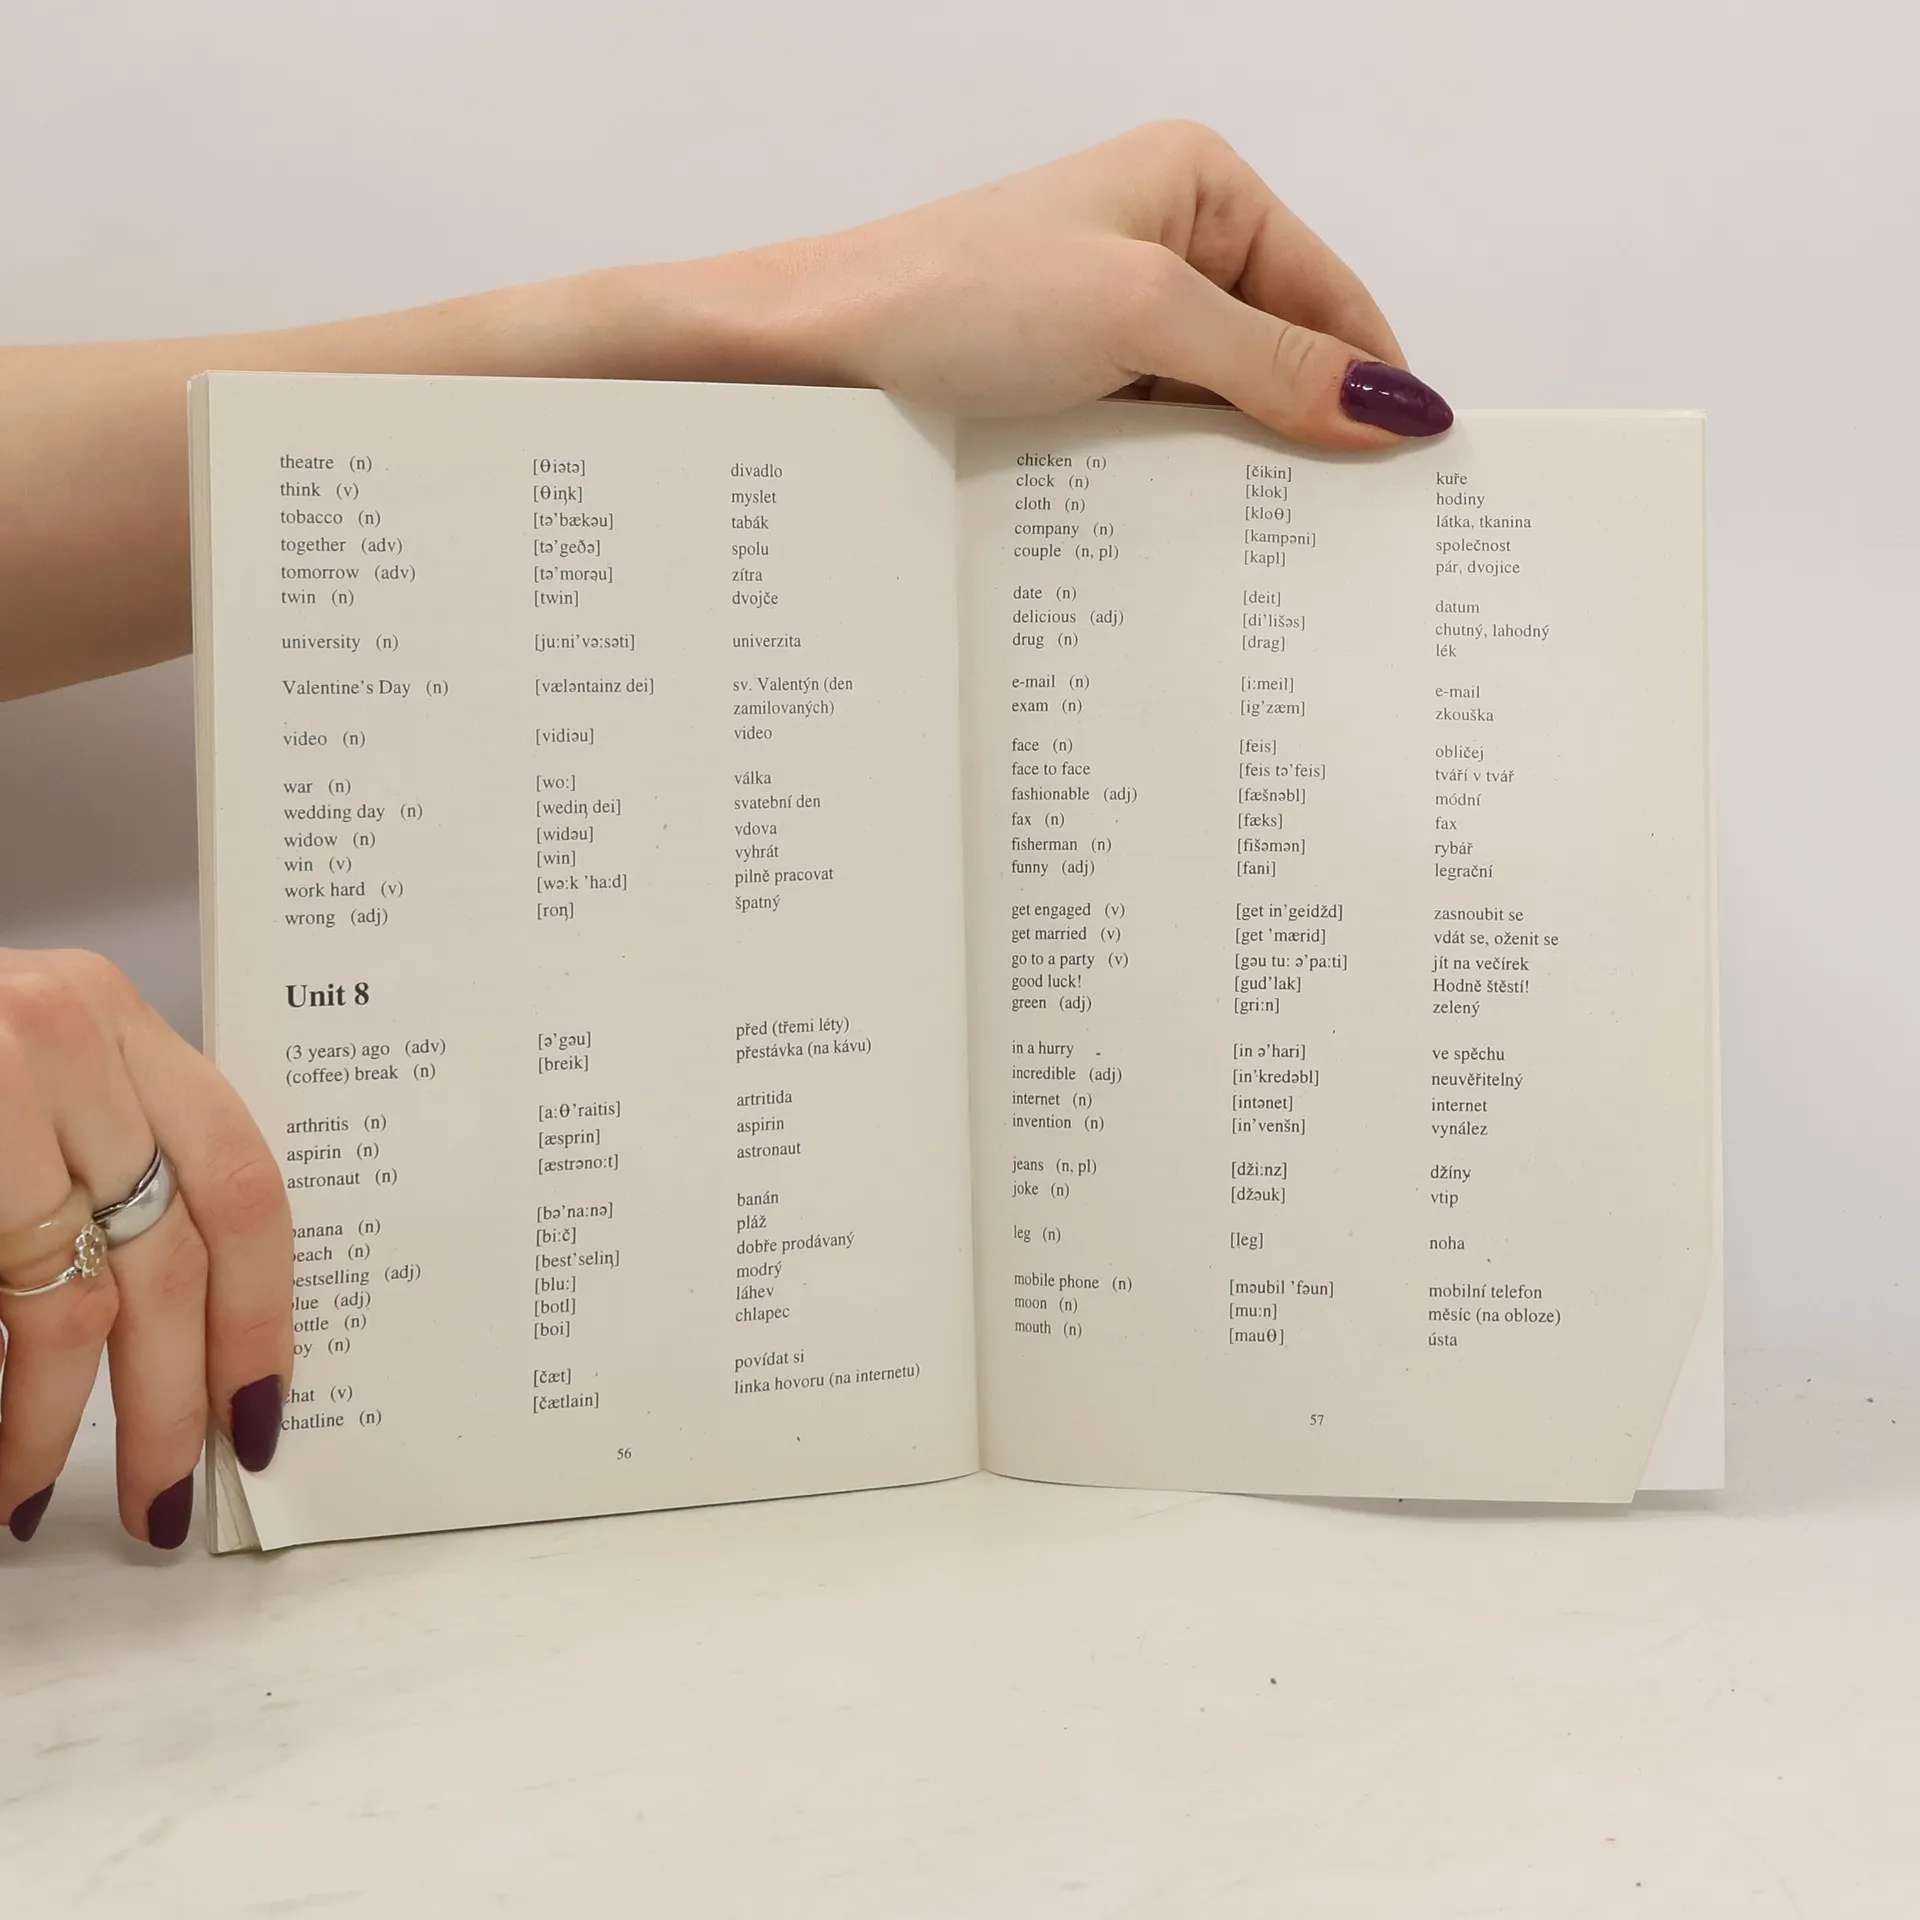 theatre (n) [θiətə] divadlo
think (v) [θiŋk] myslet
tobacco (n) [tə’bækəu] tabák
together (adv) [tə’geðə] spolu
tomorrow (adv) [tə’morəu] zítra
twin (n) [twin] dvojče
university (n) [ju:ni’və:səti] univerzita
Valentine’s Day (n) [væləntainz dei] sv. Valentýn (den
zamilovaných)
video (n) [vidiəu] video
war (n) [wo:] válka
wedding day (n) [wediŋ dei] svatební den
widow (n) [widəu] vdova
win (v) [win] vyhrát
work hard (v) [wə:k ’ha:d] pilně pracovat
wrong (adj) [roŋ] špatný
Unit 8
(3 years) ago (adv) [ə’gəu] před (třemi léty)
(coffee) break (n) [breik] přestávka (na kávu)
arthritis (n) [a:θ’raitis] artritida
aspirin (n) [æsprin] aspirin
astronaut (n) [æstrəno:t] astronaut
anana (n) [bə’na:nə] banán
each (n) [bi:č] pláž
estselling (adj) [best’seliŋ] dobře prodávaný
lue (adj) [blu:] modrý
ottle (n) [botl] láhev
oy (n) [boi] chlapec
chat (v) [čæt] povídat si
chatline (n) [čætlain] linka hovoru (na internetu)
56
chicken (n) [čikin] kuře
clock (n) [klok] hodiny
cloth (n) [kloθ] látka, tkanina
company (n) [kampəni] společnost
couple (n, pl) [kapl] pár, dvojice
date (n) [deit] datum
delicious (adj) [di’lišəs] chutný, lahodný
drug (n) [drag] lék
e-mail (n) [i:meil] e-mail
exam (n) [ig’zæm] zkouška
face (n) [feis] obličej
face to face [feis tə’feis] tváří v tvář
fashionable (adj) [fæšnəbl] módní
fax (n) [fæks] fax
fisherman (n) [fišəmən] rybář
funny (adj) [fani] legrační
get engaged (v) [get in’geidžd] zasnoubit se
get married (v) [get ’mærid] vdát se, oženit se
go to a party (v) [gəu tu: ə’pa:ti] jít na večírek
good luck! [gud’lak] Hodně štěstí!
green (adj) [gri:n] zelený
in a hurry [in ə’hari] ve spěchu
incredible (adj) [in’kredəbl] neuvěřitelný
internet (n) [intənet] internet
invention (n) [in’venšn] vynález
jeans (n, pl) [dži:nz] džíny
joke (n) [džəuk] vtip
leg (n) [leg] noha
mobile phone (n) [məubil ’fəun] mobilní telefon
moon (n) [mu:n] měsíc (na obloze)
mouth (n) [mauθ] ústa
57